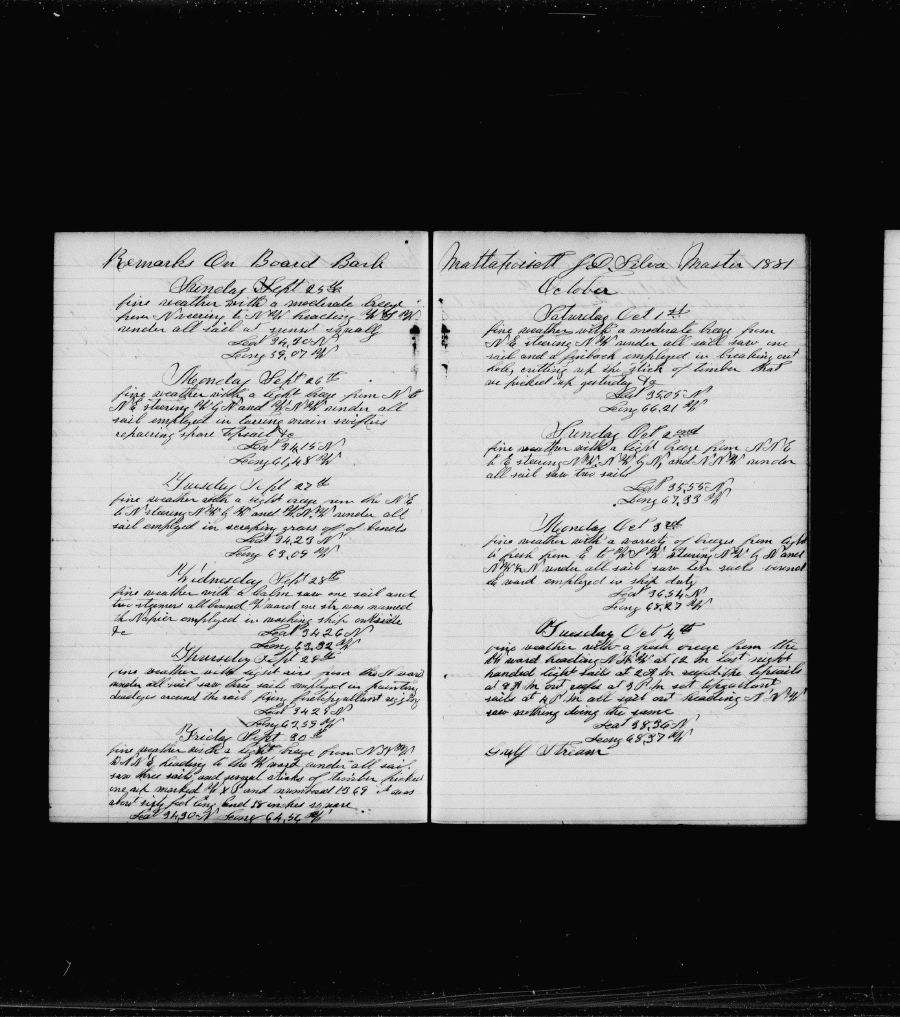 Remarks On Board Bark
Sunday Sept 25th
fine weather with a moderate breeze
from N veering to NW heading W by W
under all sail at sunset squally
Lat 34,40 N
Long 59,07 W
Monday Sept 26th
fine weather with a light breze from N to
N E steering W by N and WNW under all
sail employed in tarring main swifters
repairing spare topsail &c
Lat 34,15 N
Long 61,48 W
Tuesday Sept 27th
fine weather with a light breze from the N E
to N steering NW by W and W.N.W under all
sail employed in scraping grass of of bends
Lat 34,23 N
Long 63,09 W
Wednesday Sept 28th
fine weather with a calm saw one sail and
two steamers all bound W ward one str was named
the Napier employed in washing ship outside
&c Lat 34 26 N
Long 63,32 W
Thursday Sept 29th
fine weather with light airs from the N ward
under all sail saw three sails employed in painting
around the rail fixing foretopgallant rigging
Lat 34 25 N
Long 63,59 W
Friday Sept 30th
fine weather with a light breze from NNW
to N N E heading to the W ward under all sail
saw three sails and several sticks of timber picked
one up marked W X P and numbered 1369 it was
about sixty feet long and 18 inches square
Lat 34,30 N Long 64,56 W
Mattapoisett J. D. Silva Master 1881
October
Saturday Oct 1st
fine weather with a moderate breze from
N. E steering N W under all sail saw one
sail and a finback employed in breaking out
hole, cutting up the stick of timber that
we picked up yesterday &c
Lat 35,05 N
Long 66,21 W
Sunday Oct 2nd
fine weather with a light breeze from N N E
to E steering NW, NW by N, and NNW under
all sail saw two sails
Lat 35,55 N
Long 67,33 W
Monday Oct 3rd
fine weather with a variety of breezes from light
to fresh from E to WSW steering NW by N and
NW by N under all sail saw two sails bound
ward employed in ship duty
Lat 36,54 N
Long 68,27 W
Tuesday Oct 4th
fine weather with a fresh breze from the
ward heading N.N.W at 12 M last night
handed light sails at 2 A M reefed the topsails
at 9 A M out reefs at 3 P. M set topgallant
sails at 4 P M all sail out heading N N W
saw nothing doing the same
Lat 38,36 N
Long 68,37 W
Gulf Stream